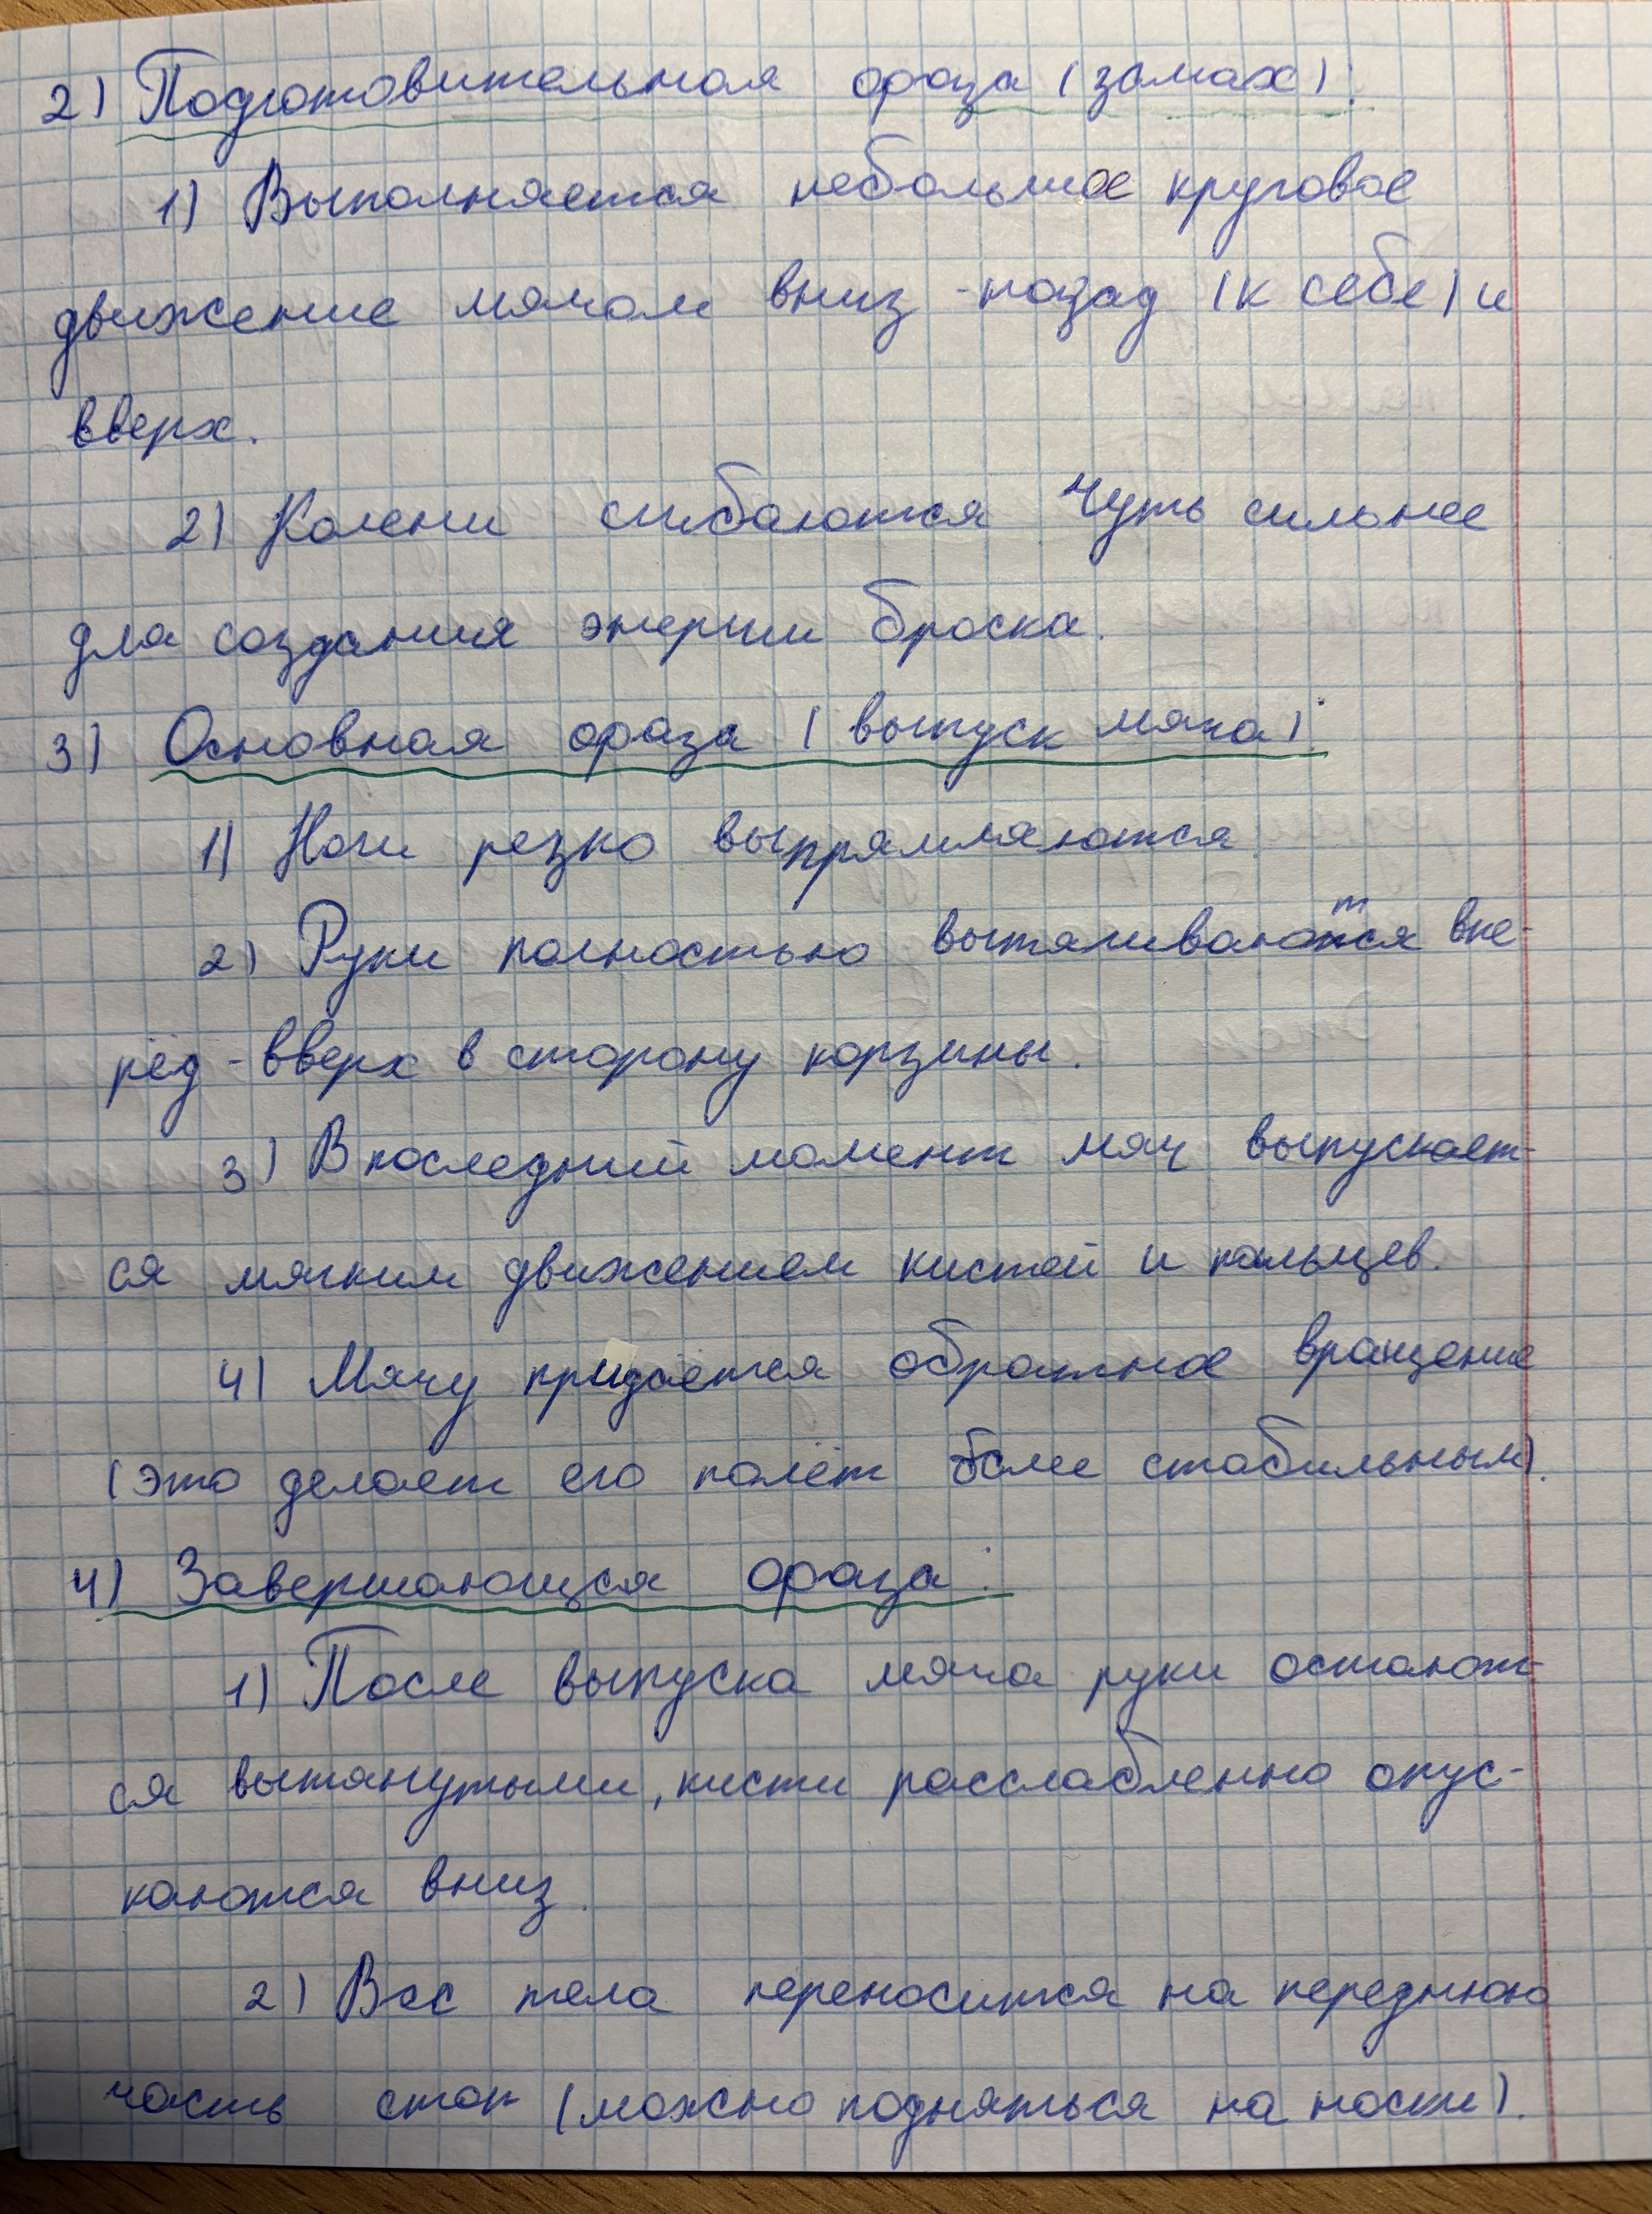 2) Подготовительная фаза (замах):
1) Выполняется небольшое круговое
движение мячом вниз-назад (к себе) и
вверх.
2) Колени сгибаются чуть сильнее
для создания энергии броска.
3) Основная фаза (выпуск мяча):
1) Ноги резко выпрямляются.
2) Руки полностью вытягиваются впе-
рёд-вверх в сторону корзины.
3) В последний момент мяч выпускает-
ся мягким движением кистей и пальцев.
4) Мячу придаётся обратное вращение
(это делает его полёт более стабильным).
4) Завершающая фаза:
1) После выпуска мяча руки остают-
ся вытянутыми, кисти расслабленно опус-
каются вниз.
2) Вес тела переносится на переднюю
часть стоп (можно подняться на носки).